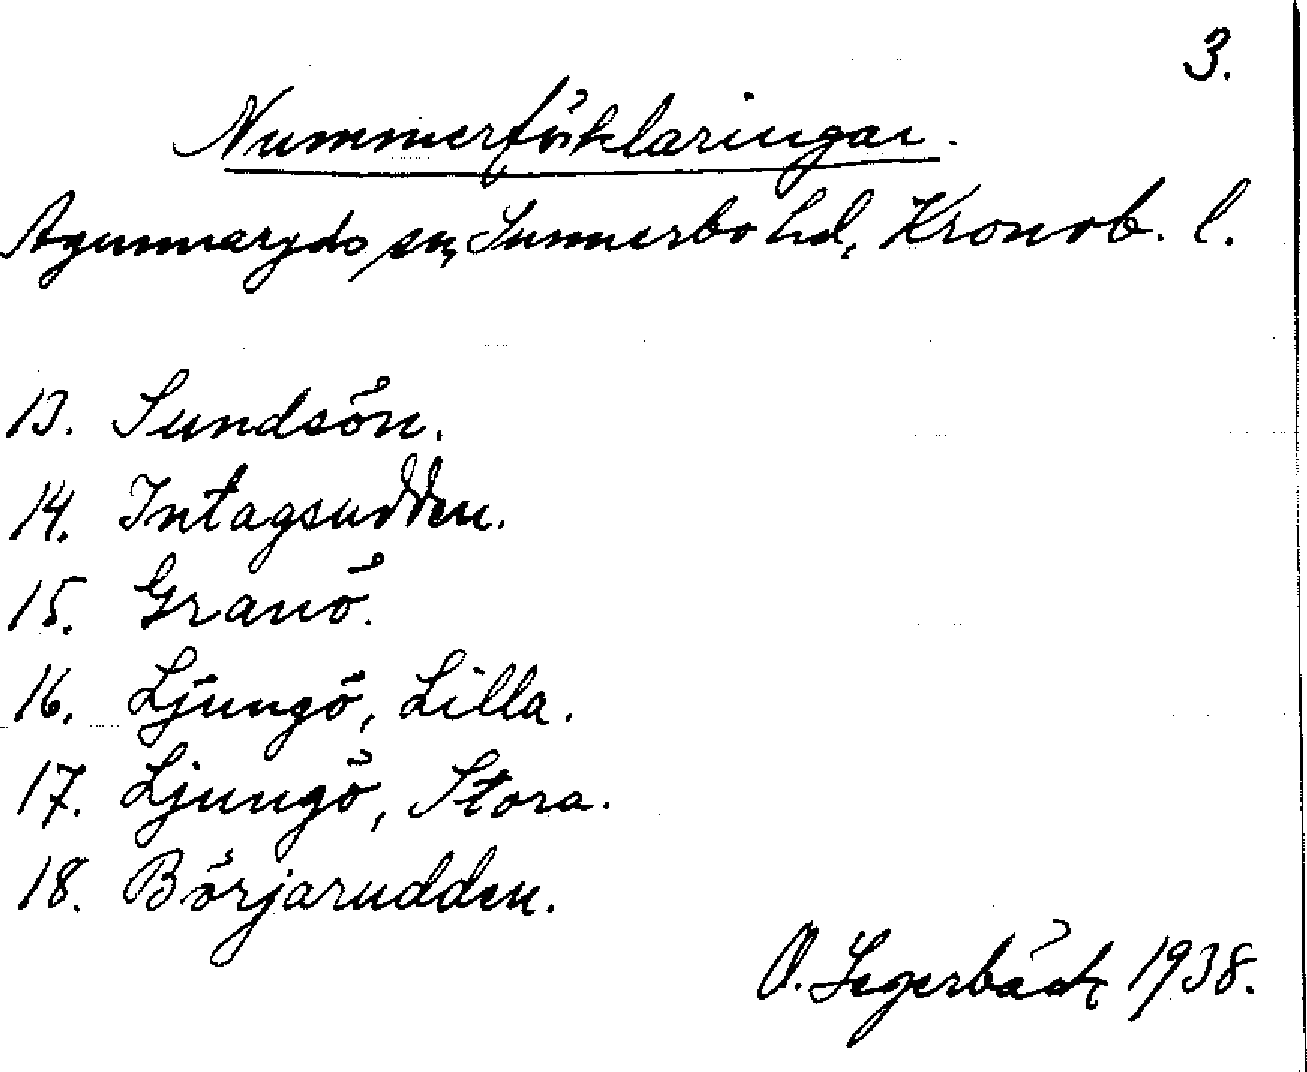 3.
Nummerförklaringar.
Agunnaryds sn, Sunnerbo hd, Kronob. l.
13. Sundsön.
14. Intagsudden.
15. Granö.
16. Ljungö, Lilla.
17. Ljungö, Stora.
18. Börjarudden.
O. Segerbäck 1938.